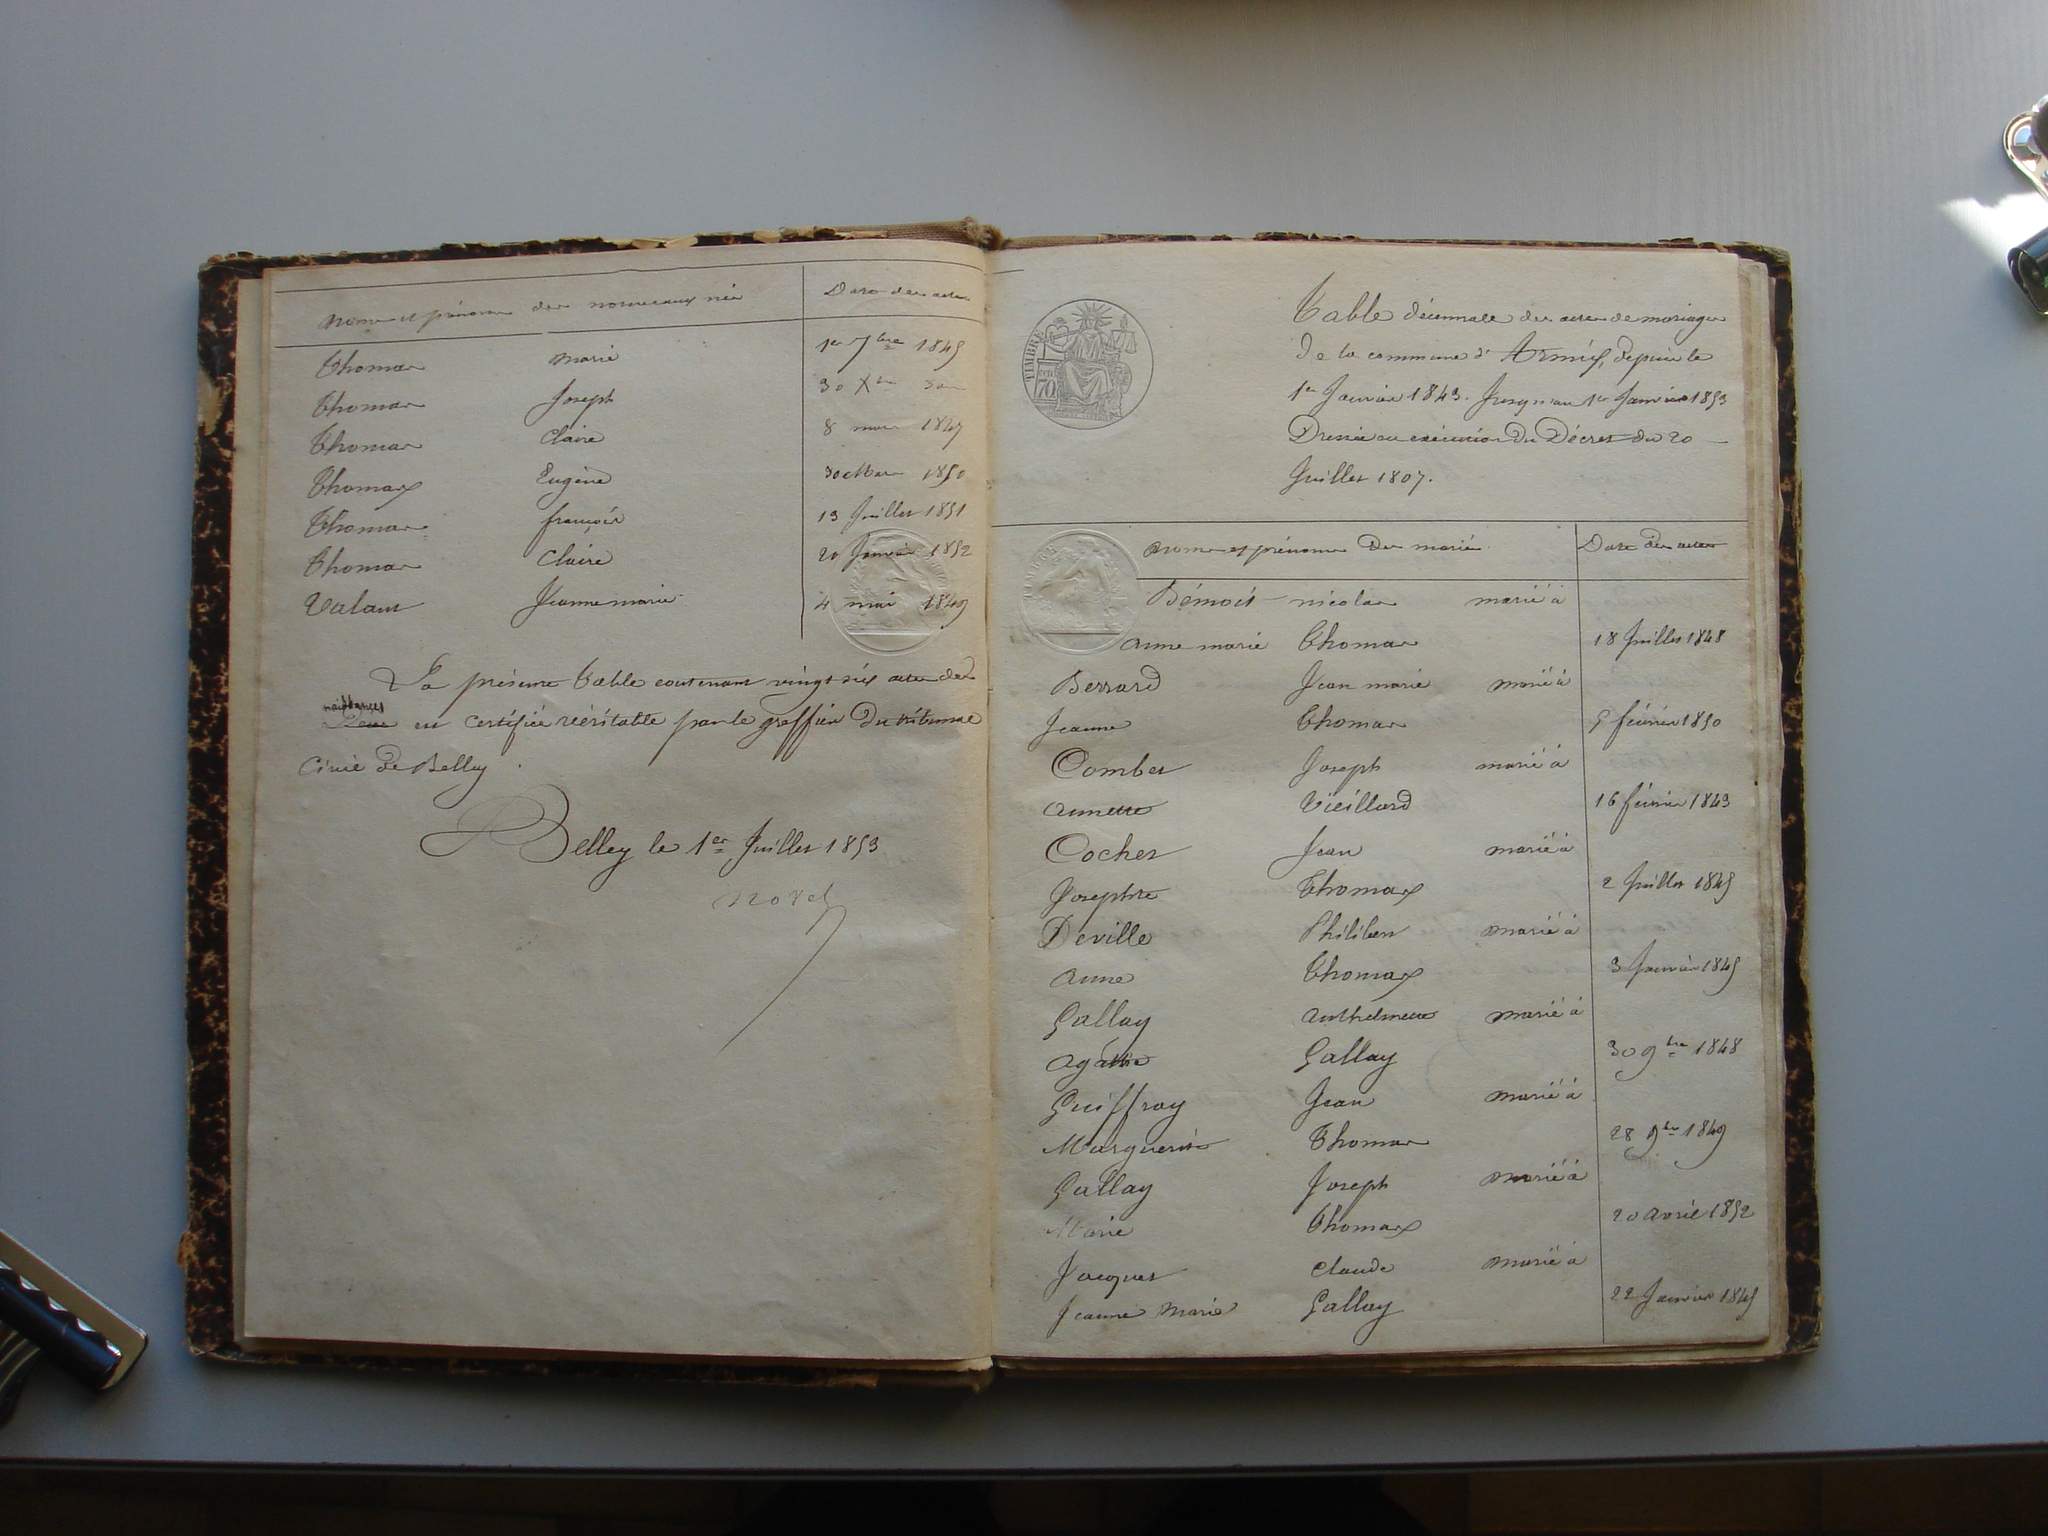 Noms et prénoms des nouveaux nés Date des actes
Thomas Marie 1er 7bre 1845
Thomas Joseph 30 Xbre
Thomas Claire 8 mars 1847
Thomas Eugène 1850
Thomas françois 13 Juillet 1851
Thomas Claire 20 Janvier 1852
Valant Jeanne marie 4 mai 1849
La présente table contenant vingt six actes de
naissances
est certifiée véritable par le greffier du tribunal
Civil de Belley
Belley le 1er Juillet 1853
TIMBRE
70
Table décennale des actes de mariages
de la commune d'Armix, depuis le
1er Janvier 1843. Jusqu'au 1er Janvier 1853
Dressée en exécution du Décret du 20
Juillet 1807.
Noms et prénoms des mariés. Date des actes
Bénoit nicolas marié à
anne marie Thomas 18 Juillet 1848
Berrard Jean marie marié à
Jeanne Thomas 5 février 1850
Combet Joseph marié à
annette Vieillard 16 février 1843
Cochet Jean marié à
Josephte Thomas 2 Juillet 1845
Deville Philibert marié à
anne Thomas 3 Janvier 1845
Gallay Anthelme marié à
agathe Gallay 30 9bre 1848
Guiffray Jean marié à
Marguerite Thomas 28 9bre 1849
Gallay Joseph marié à
Marie Thomas 20 avril 1852
Jacquet Claude marié à
Jeanne Marie Gallay 22 Janvier 1845